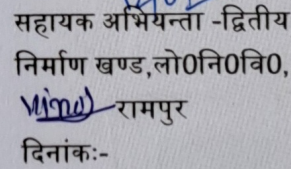 सहायक अभियन्ता -द्वितीय
निर्माण खण्ड,लो0नि0वि0,
रामपुर
दिनांकः-